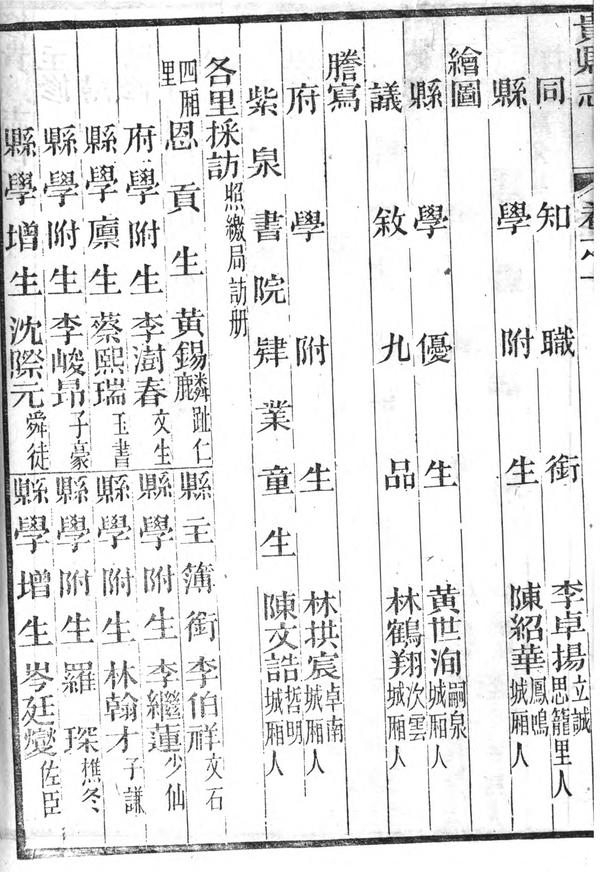 貴縣志
卷之十
同知職銜 李卓揚 立誠 思籠里人
縣學附生 陳紹華 鳳鳴 城厢人
繪圖
縣學優生 黃世洵 嗣泉 城厢人
議敘九品 林鶴翔 次雲 城厢人
謄寫
府學附生 林拱宸 卓南 城厢人
紫泉書院肄業童生 陳文誥 哲明 城厢人
各里採訪 照繳局訪册
四厢里 恩貢生 黃錫麟 趾仁
縣主簿銜 李伯祥 文石
府學附生 李澍春 文生
縣學附生 李繼蓮 少仙
縣學廪生 蔡熙瑞 玉書
縣學附生 林翰才 子謙
縣學附生 李峻昂 子豪
縣學附生 羅琛 樵冬
縣學增生 沈際元 舜徒
縣學增生 岑廷燮 佐臣